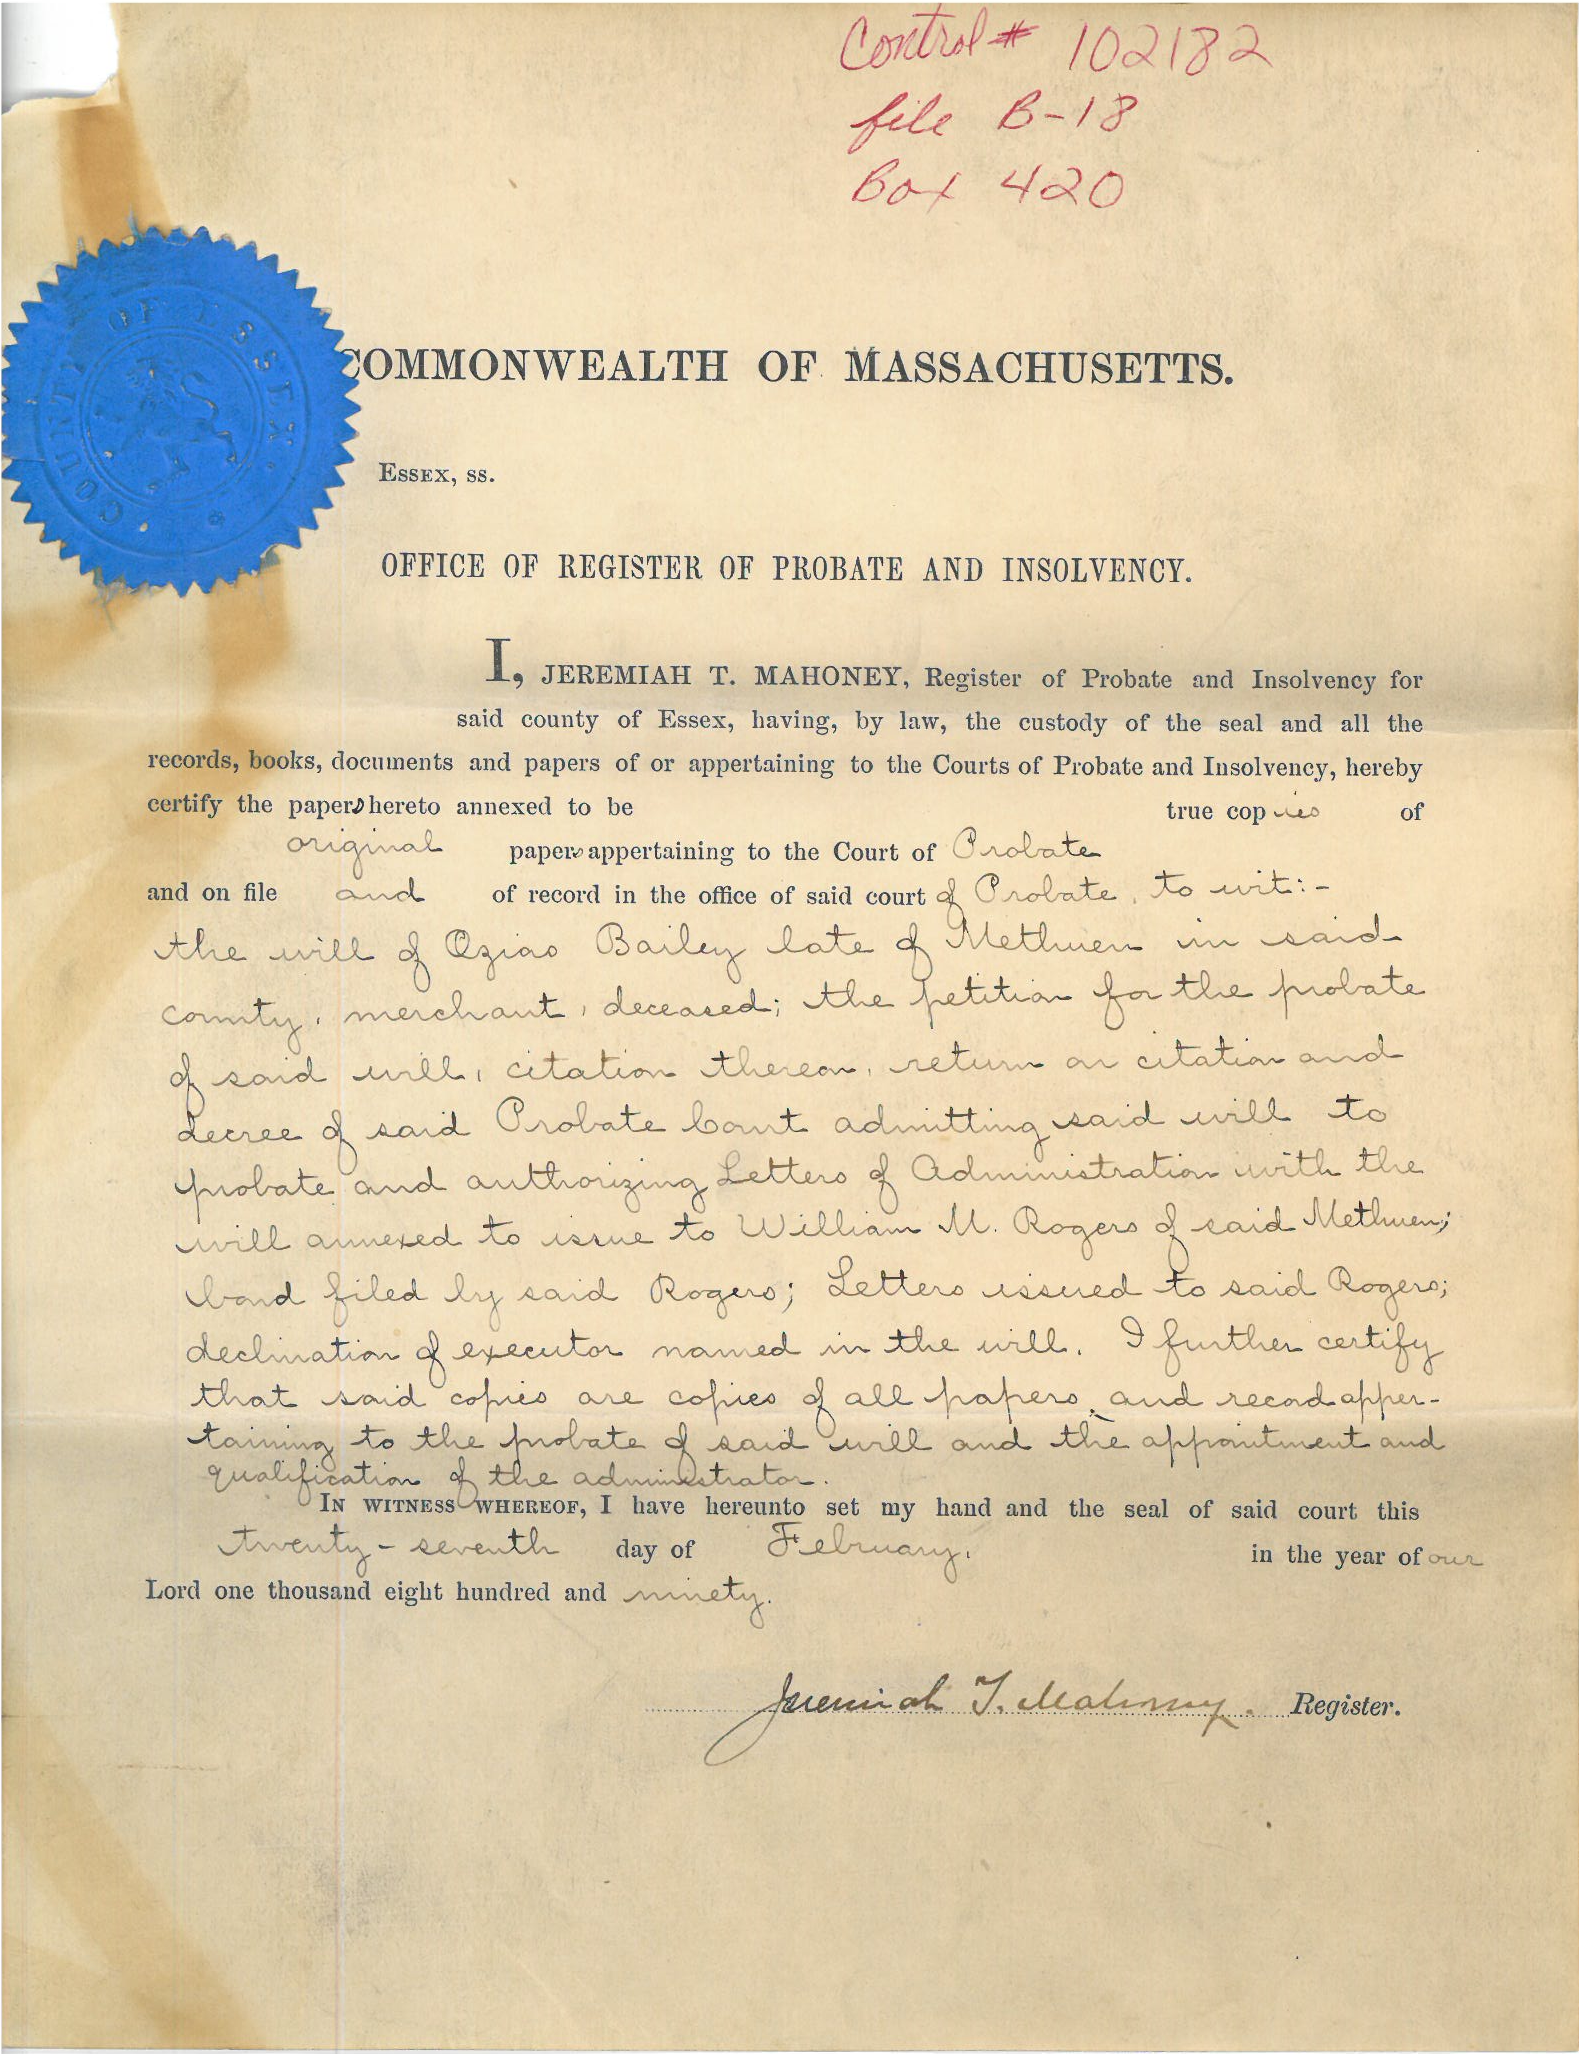 Control # 102182
file B-18
Box 420
COUNTY OF ESSEX.
COMMONWEALTH OF MASSACHUSETTS.
ESSEX, SS.
OFFICE OF REGISTER OF PROBATE AND INSOLVENCY.
I, JEREMIAH T. MAHONEY, Register of Probate and Insolvency for
said county of Essex, having, by law, the custody of the seal and all the
records, books, documents and papers of or appertaining to the Courts of Probate and Insolvency, hereby
certify the papers hereto annexed to be true copies of
original papers appertaining to the Court of Probate
and on file and of record in the office of said court of Probate, to wit:-
the will of Ozias Bailey late of Methuen in said
county, merchant, deceased; the petition for the probate
of said will, citation thereon, return on citation and
decree of said Probate Court admitting said will to
probate and authorizing Letters of Administration with the
will annexed to issue to William M. Rogers of said Methuen;
bond filed by said Rogers; Letters issued to said Rogers;
declination of executor named in the will. I further certify
that said copies are copies of all papers and record apper-
taining to the probate of said will and the appointment and
qualification of the administrator.
IN WITNESS WHEREOF, I have hereunto set my hand and the seal of said court this
twenty-seventh day of February, in the year of our
Lord one thousand eight hundred and ninety.
Jeremiah T. Mahoney. Register.